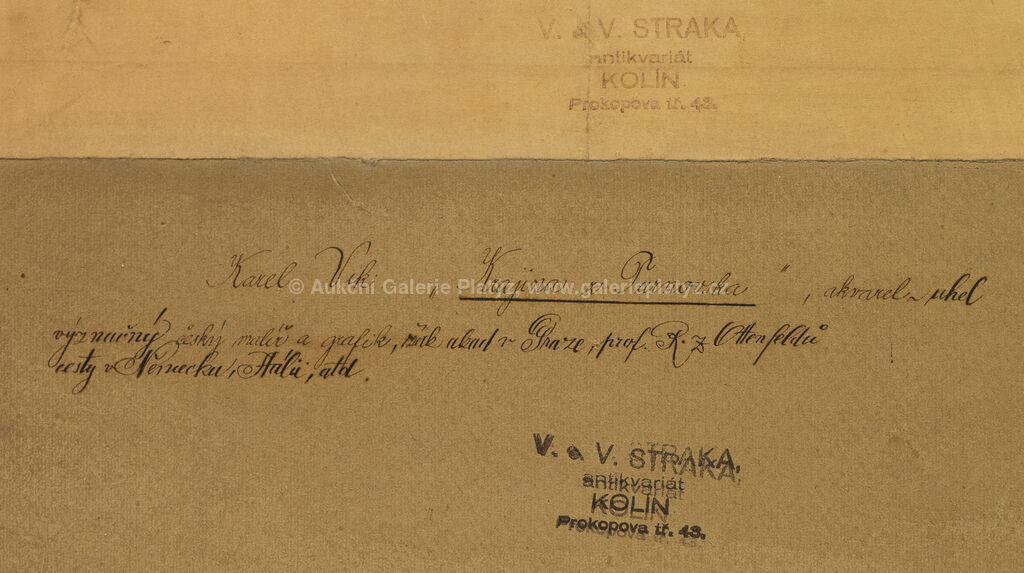 V. a V. STRAKA,
antikvariát
KOLÍN
Prokopova tř. 43.
Karel Vik: „Krajina z Turnovska", akvarel, uhel
© Aukční Galerie Platýz, www.galerieplatyz.cz
význačný český malíř a grafik, žák akad v Praze, prof. R. z Ottenfeldů
cesty v Německu, Itálii, atd.
V. a V. STRAKA,
antikvariát
KOLÍN
Prokopova tř. 43.